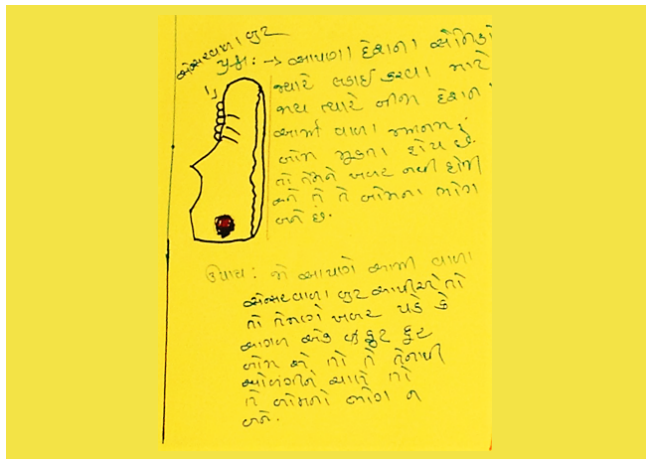 સેન્સરવાળા બુટ
પ્રશ્ન :-> આપણા દેશના સૈનિકો
જ્યારે લડાઈ કરવા માટે
જાય ત્યારે બીજા દેશના
આર્મી વાળા જમાનમાં
બોમ મુકતા હોય છે.
તો તેમને ખબર નથી હોતી
અને તે તે બોમના ભોગ
બને છે.
ઉપાય : જો આપણે આર્મી વાળા
સેન્સરવાળા બુટ આપીએ તો
તો તેમણે ખબર પડે કે
આગળ એક બે ફુટ દુર
બોમ છે તો તે તેનાથી
ઓળંગીને ચાલે તો
તે બોમનો ભોગ ન
બને.